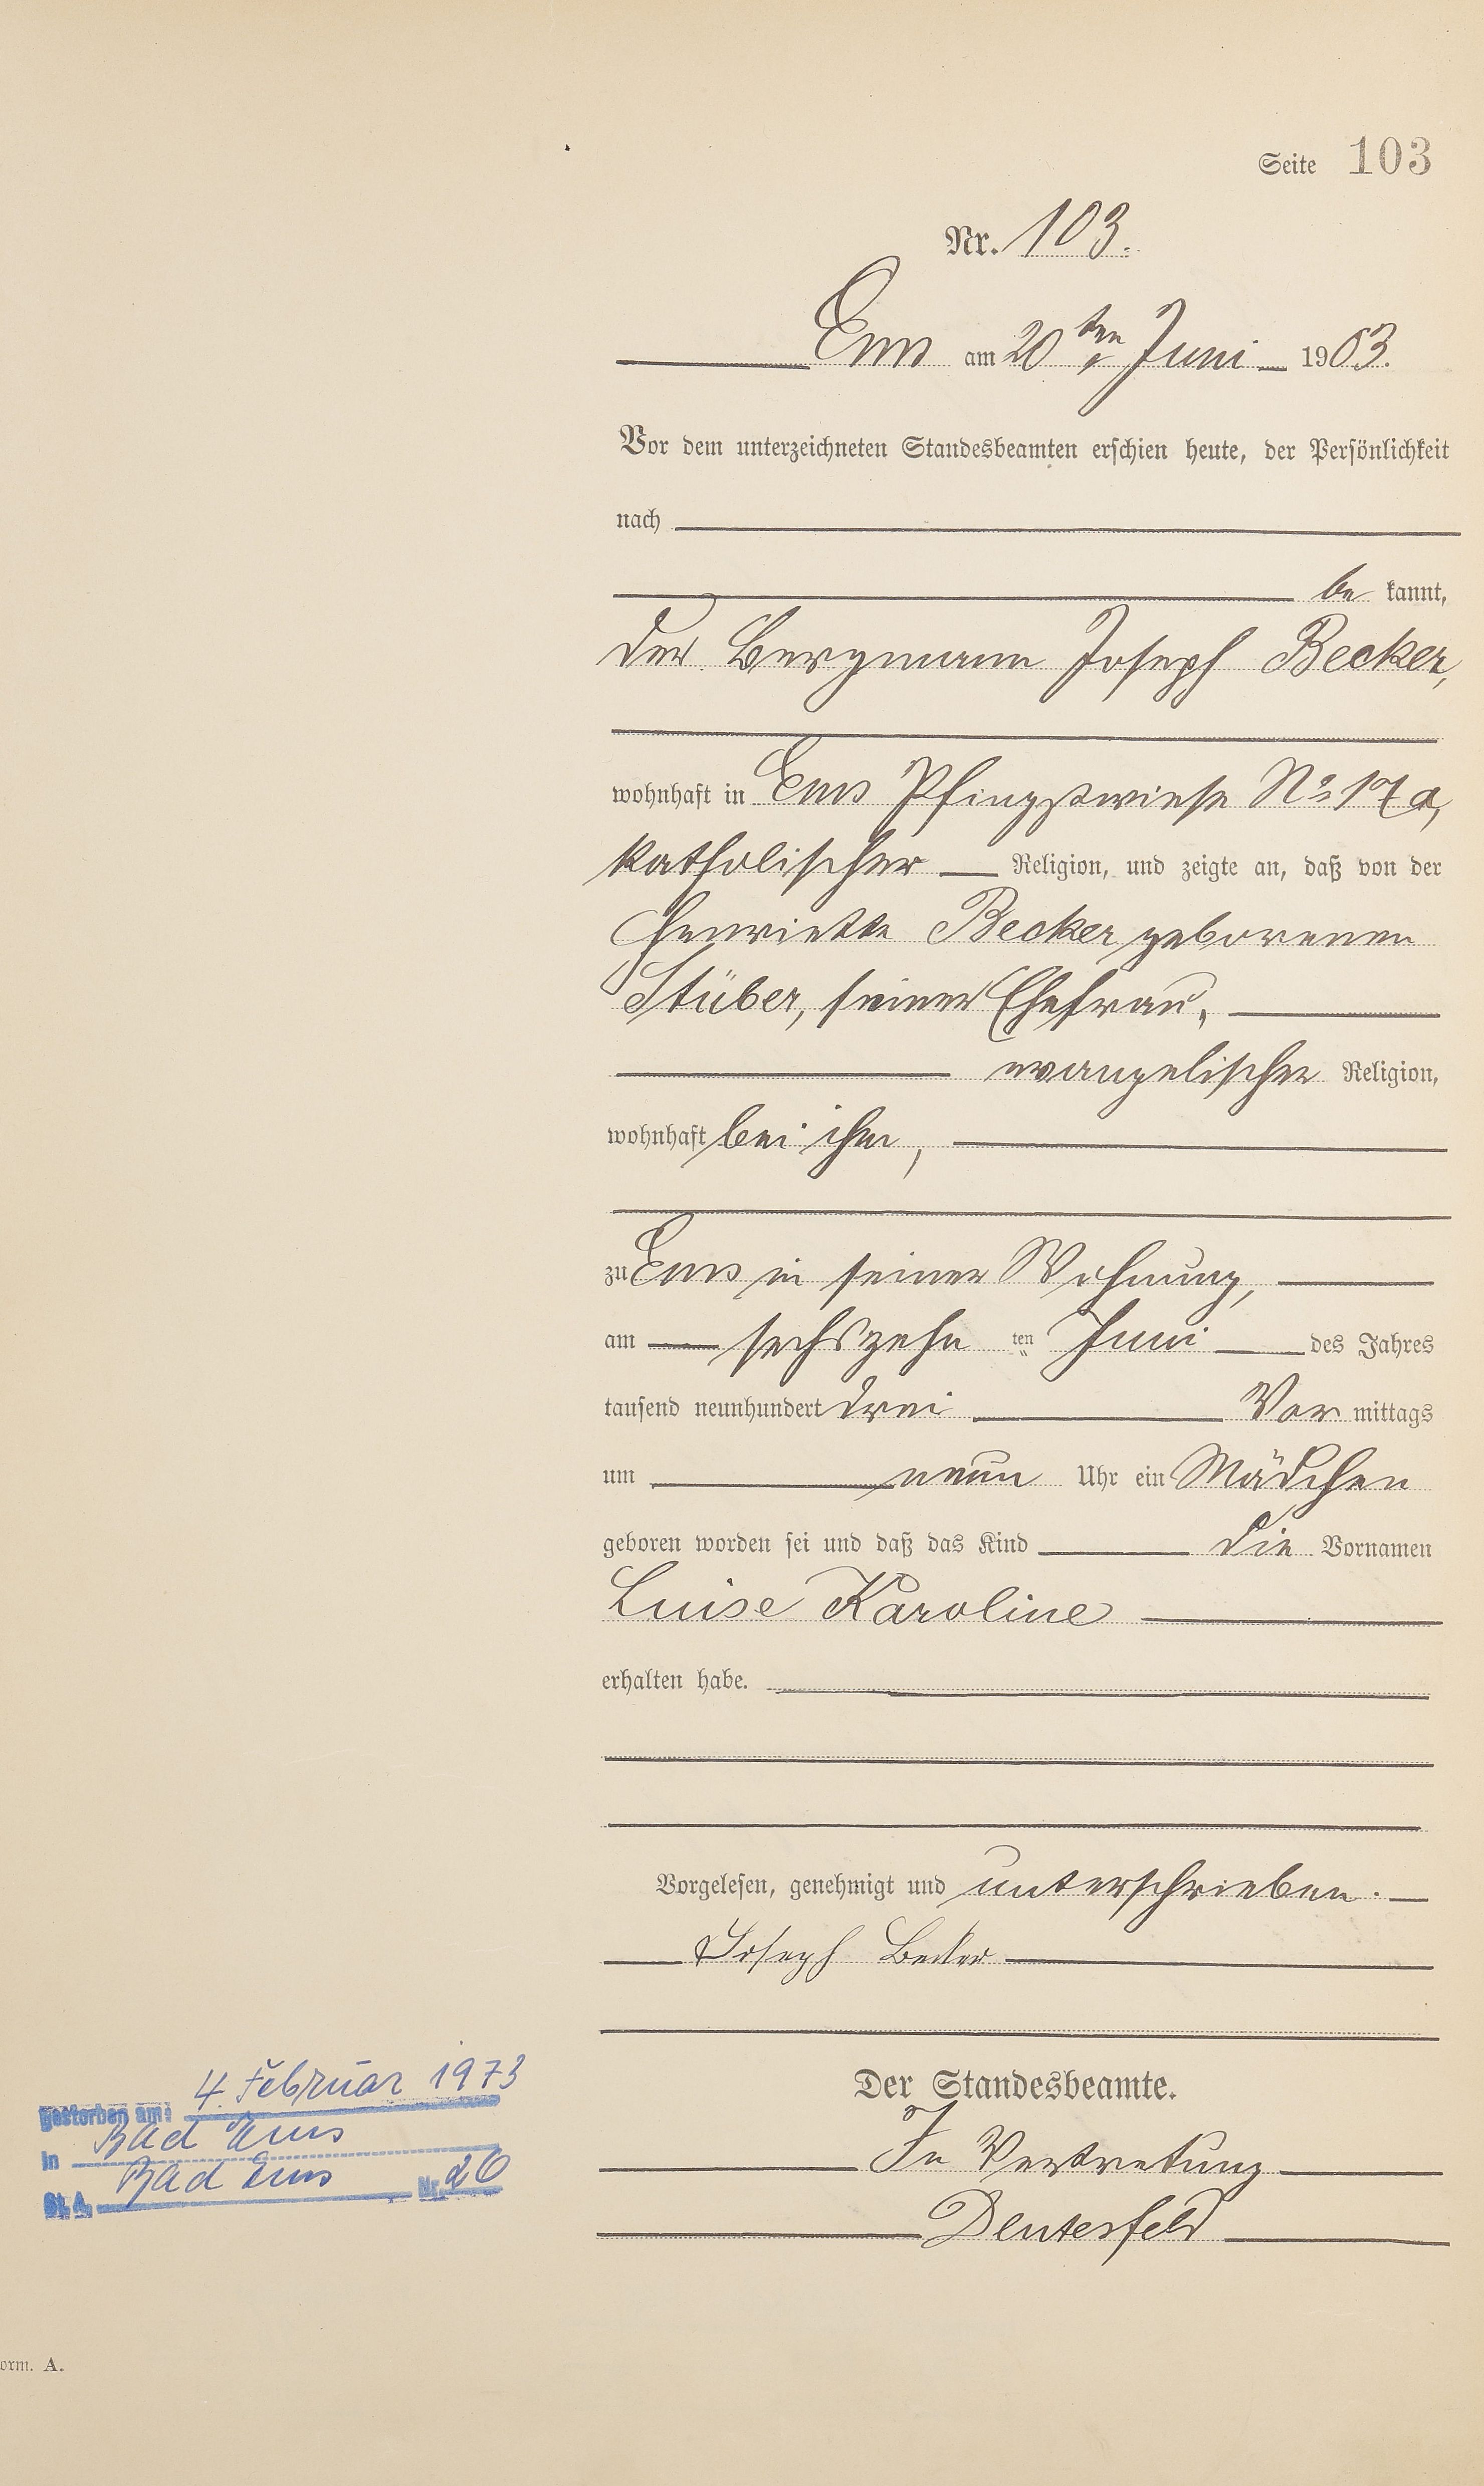 Seite 103
Nr. 103.
Ems am 20ten Juni 1903.
Vor dem unterzeichneten Standesbeamten erschien heute, der Persönlichkeit
nach
be kannt,
der Bergmann Joseph Becker,
wohnhaft in Ems Pfingstwiese No 17a,
katholischer Religion, und zeigte an, daß von der
Henriette Becker geborenen
Stüber, seiner Ehefrau,
evangelischer Religion,
wohnhaft bei ihm,
zu Ems in seiner Wohnung,
am sechszehn ten Juni des Jahres
tausend neunhundert drei Vor mittags
um neun Uhr ein Mädchen
geboren worden sei und daß das Kind die Vornamen
Luise Karoline
erhalten habe.
Vorgelesen, genehmigt und unterschrieben.
Joseph Becker
Der Standesbeamte.
In Vertretung
gestorben am: 4. Februar 1973
in Bad Ems
St. A. Bad Ems Nr. 26
orm. A.